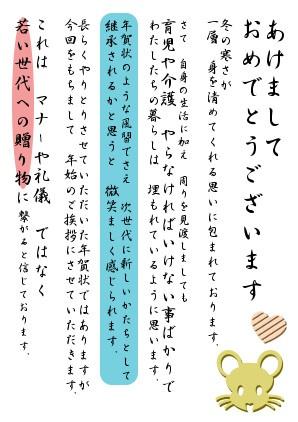 あけまして
おめでとうございます
冬の寒さが
一層 身を清めてくれる思いに包まれております。
さて 自身の生活に加え 周りを見渡しましても
育児や介護 やらなければいけない事ばかりで
わたしたちの暮らしは 埋もれているように思います。
年賀状のような風習でさえ 次世代に新しいかたちとして
継承されるかと思うと 微笑ましく感じられます。
長らくやりとりさせていただいた年賀状ではありますが
今回をもちまして 年始のご挨拶にさせていただきます。
これは マナーや礼儀 ではなく
若い世代への贈り物に 繋がると信じております。